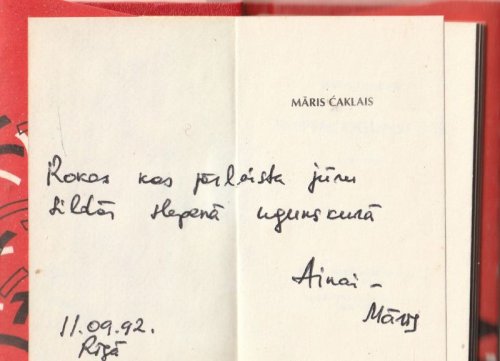 MĀRIS ČAKLAIS
Rokas kas pārlaista jūru
sildās slepenā ugunskurā
Ainai –
Māris
11.09.92.
Rīgā